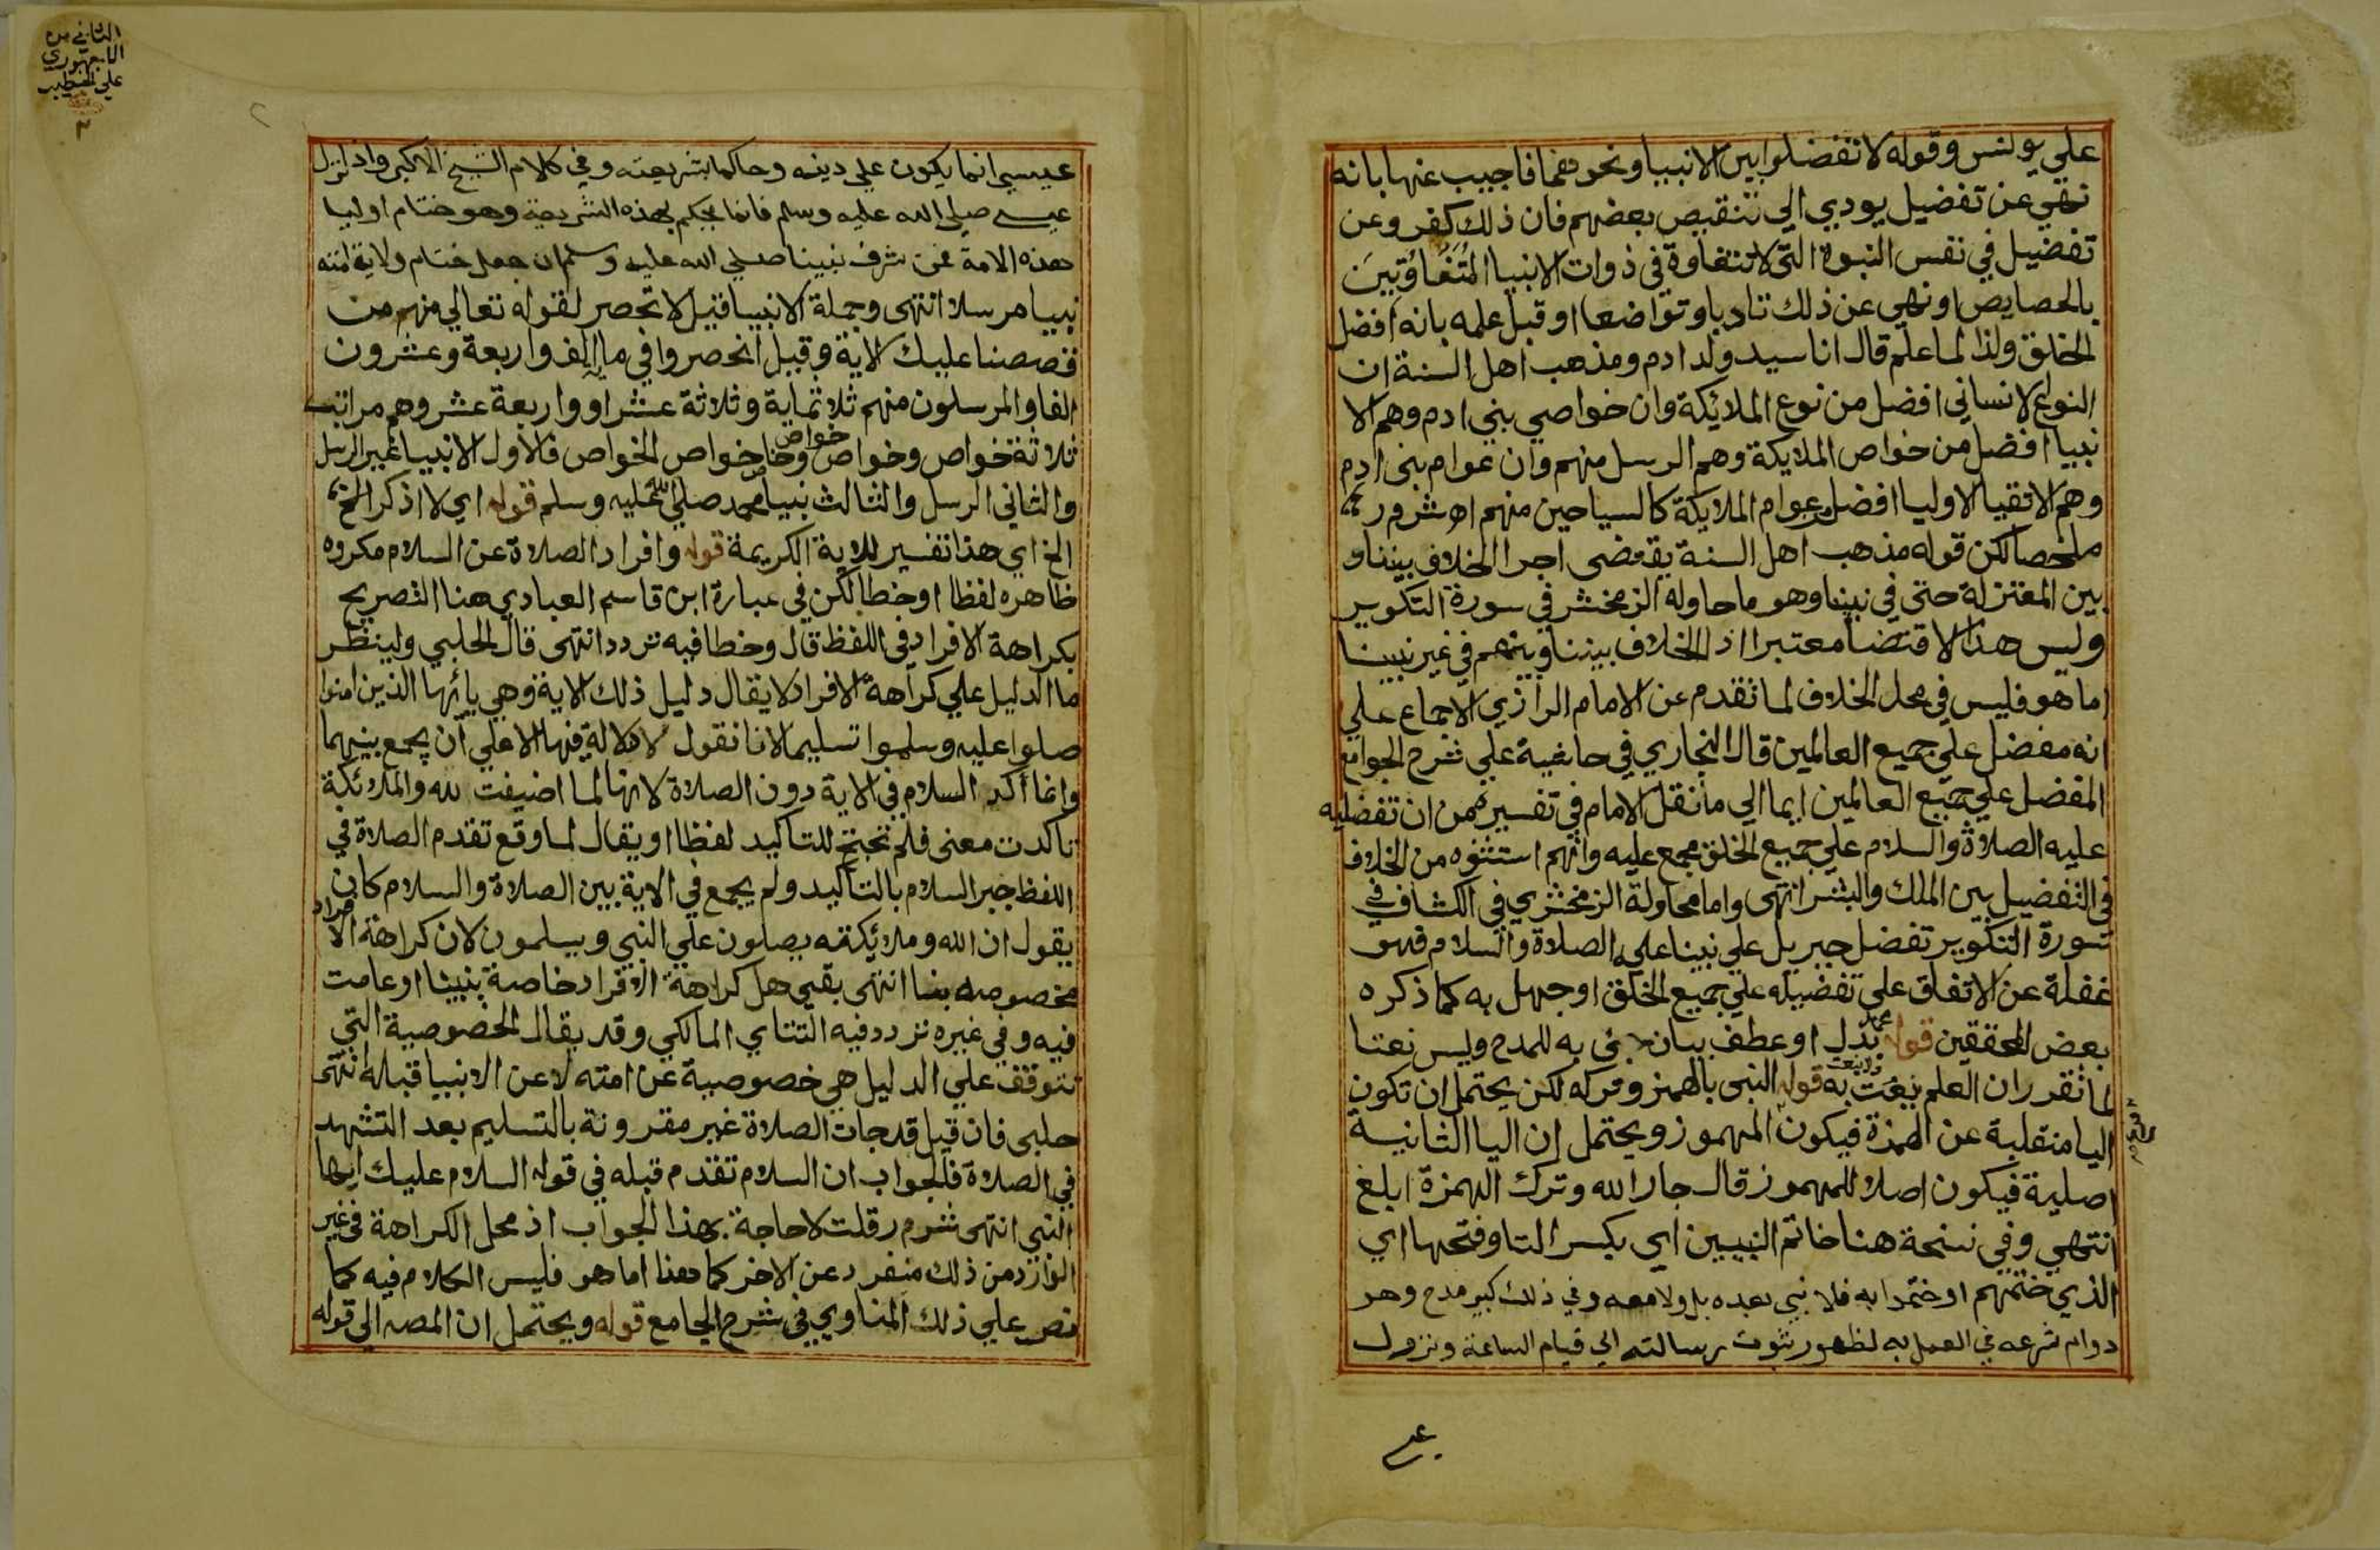 علي يونس وقوله لا تفضلوا بين الانبيا ونحوهما فاجيب عنها بانه
نهي عن تفضيل يودي الي تنقيص بعضهم فان ذلك كفر وعن
تفضيل في نفس النبوة التي لا تتفاوة في ذوات الانبيا المتفاوتين
بالخصايص او نهي عن ذلك تادبا وتواضعا او قبل علمه بانه افضل
الخلق ولذا لما علم قال انا سيد ولد ادم ومذهب اهل السنة ان
النوع الانساني افضل من نوع الملائكة وان خواصي بني ادم وهم الا
نبيا افضل من خواص الملايكة وهم الرسل منهم وان عوام بني ادم
وهم الاتقيا الاوليا افضل من عوام الملايكة كالسياحين منهم اه ش م ر
ملخصا لكن قوله مذهب اهل السنة يقتضي اجرا الخلاف بيننا و
بين المعتزلة حتي في نبينا وهو ما حاوله الزمخشر في سورة التكوير
وليس هذا الاقتضا معتبرا اذ الخلاف بيننا وبينهم في غير نبينا
اما هو فليس في محل الخلاف لما تقدم عن الامام الرازي الاجماع علي
انه مفضل علي جميع العالمين قال النجاري في حاشية علي شرح الجوامع
المفضل علي جميع العالمين ايما الي ما نقل الامام في تفسيره من ان تفضليه
عليه الصلاة والسلام علي جميع الخلق مجمع عليه وانهم استثنوه من الخلاف
في التفضيل بين الملك والبشر انتهى واما محاولة الزمخشري في الكشاف في
سورة التكوير تفضل جبريل علي نبينا عليه الصلاة والسلام فهو
غفلة عن الاتفاق علي تفضيله علي جميع الخلق او جهل به كما ذكره
بعض المحققين قوله محمد بدل او عطف بيان لا جئ به للمدح وليس نعتا
لما تقرر ان العلم ينعت ولا ينعت به قوله النبي بالهمز وتركه لكن يحتمل ان تكون
اليا منقلبة عن الهمزة فيكون المهموز ويحتمل ان اليا الثانية
اصلية فيكون اصلا للمهموز قال جار الله وترك الهمزة ابلغ
انتهي وفي نسخة هنا خاتم النبيين اي بكسر التا وفتحها اي
الذي ختمهم او ختموا به فلا نبي بعده بل ولا معه وفي ذلك كبير مدح وهو
دوام شرعه في العمل به لظهور ثبوت رسالته الي قيام الساعة ونزول
عيسي
الثاني من
الاجهوري
علي الخطيب
٢
عيسي انما يكون علي دينه وحاكما بشريعته وفي كلام الشيخ الاكبر واذ انزل
عيسي صلي الله عليه وسلم فانما يحكم بهذه الشريعة وهو ختام اوليا
هذه الامة فمن شرف نبينا صلي الله عليه وسلم ان جعل ختام ولاية امته
نبيا مرسلا انتهى وجملة الانبيا قيل لا تحصر لقوله تعالي منهم من
قصصنا عليك الاية وقيل انحصروا في ماية الف واربعة وعشرون
الفا والمرسلون منهم ثلاثماية وثلاثة عشر او واربعة عشر وهم مراتب
ثلاثة خواص وخواص خواص وخاص خواص الخواص فالاول الانبيا غير الرسل
والثاني الرسل والثالث نبينا محمد صلي الله عليه وسلم قوله اي لا اذكر الخ
الخ اي هذا تفسير للاية الكريمة قوله وافراد الصلاة عن السلام مكروه
ظاهره لفظا او خطا لكن في عبارة ابن قاسم العبادي هنا التصريح
بكراهة الافراد في اللفظ قال وخطا فيه تردد انتهى قال الحلبي ولينظر
ما الدليل علي كراهة الافراد لا يقال دليل ذلك الاية وهي يا ئها الذين امنوا
صلوا عليه وسلموا تسليما لانا نقول لا دلالة فيها الا علي ان يجمع بينهما
وانما أكد السلام في الاية دون الصلاة لانها لما اضيفت لله والملائكة
تاكدت معنى فلم تحتج للتاكيد لفظا او يقال لما وقع تقدم الصلاة في
اللفظ جبر السلام بالتأكيد ولم يجمع في الاية بين الصلاة والسلام كان
يقول ان الله وملائكته يصلون علي النبي ويسلمون لان كراهة الافراد
مخصوصه بنا انتهى بقي هل كراهة الافراد خاصة بنبينا او عامت
فيه وفي غيره تردد فيه التتاي المالكي وقد يقال الخصوصية التي
تتوقف علي الدليل هي خصوصية عن امته لا عن الانبيا قبله انتهى
حلبي فان قيل قد جات الصلاة غير مقرونة بالتسليم بعد التشهد
في الصلاة فالجواب ان السلام تقدم قبله في قوله السلام عليك ايها
النبي انتهى ش م ر قلت لا حاجة بهذا الجواب اذ محل الكراهة في غير
الوارد من ذلك منفرد عن الاخر كما هنا اما هو فليس الكلام فيه كما
نص علي ذلك المناوي في شرح الجامع قوله ويحتمل ان المصه الي قوله